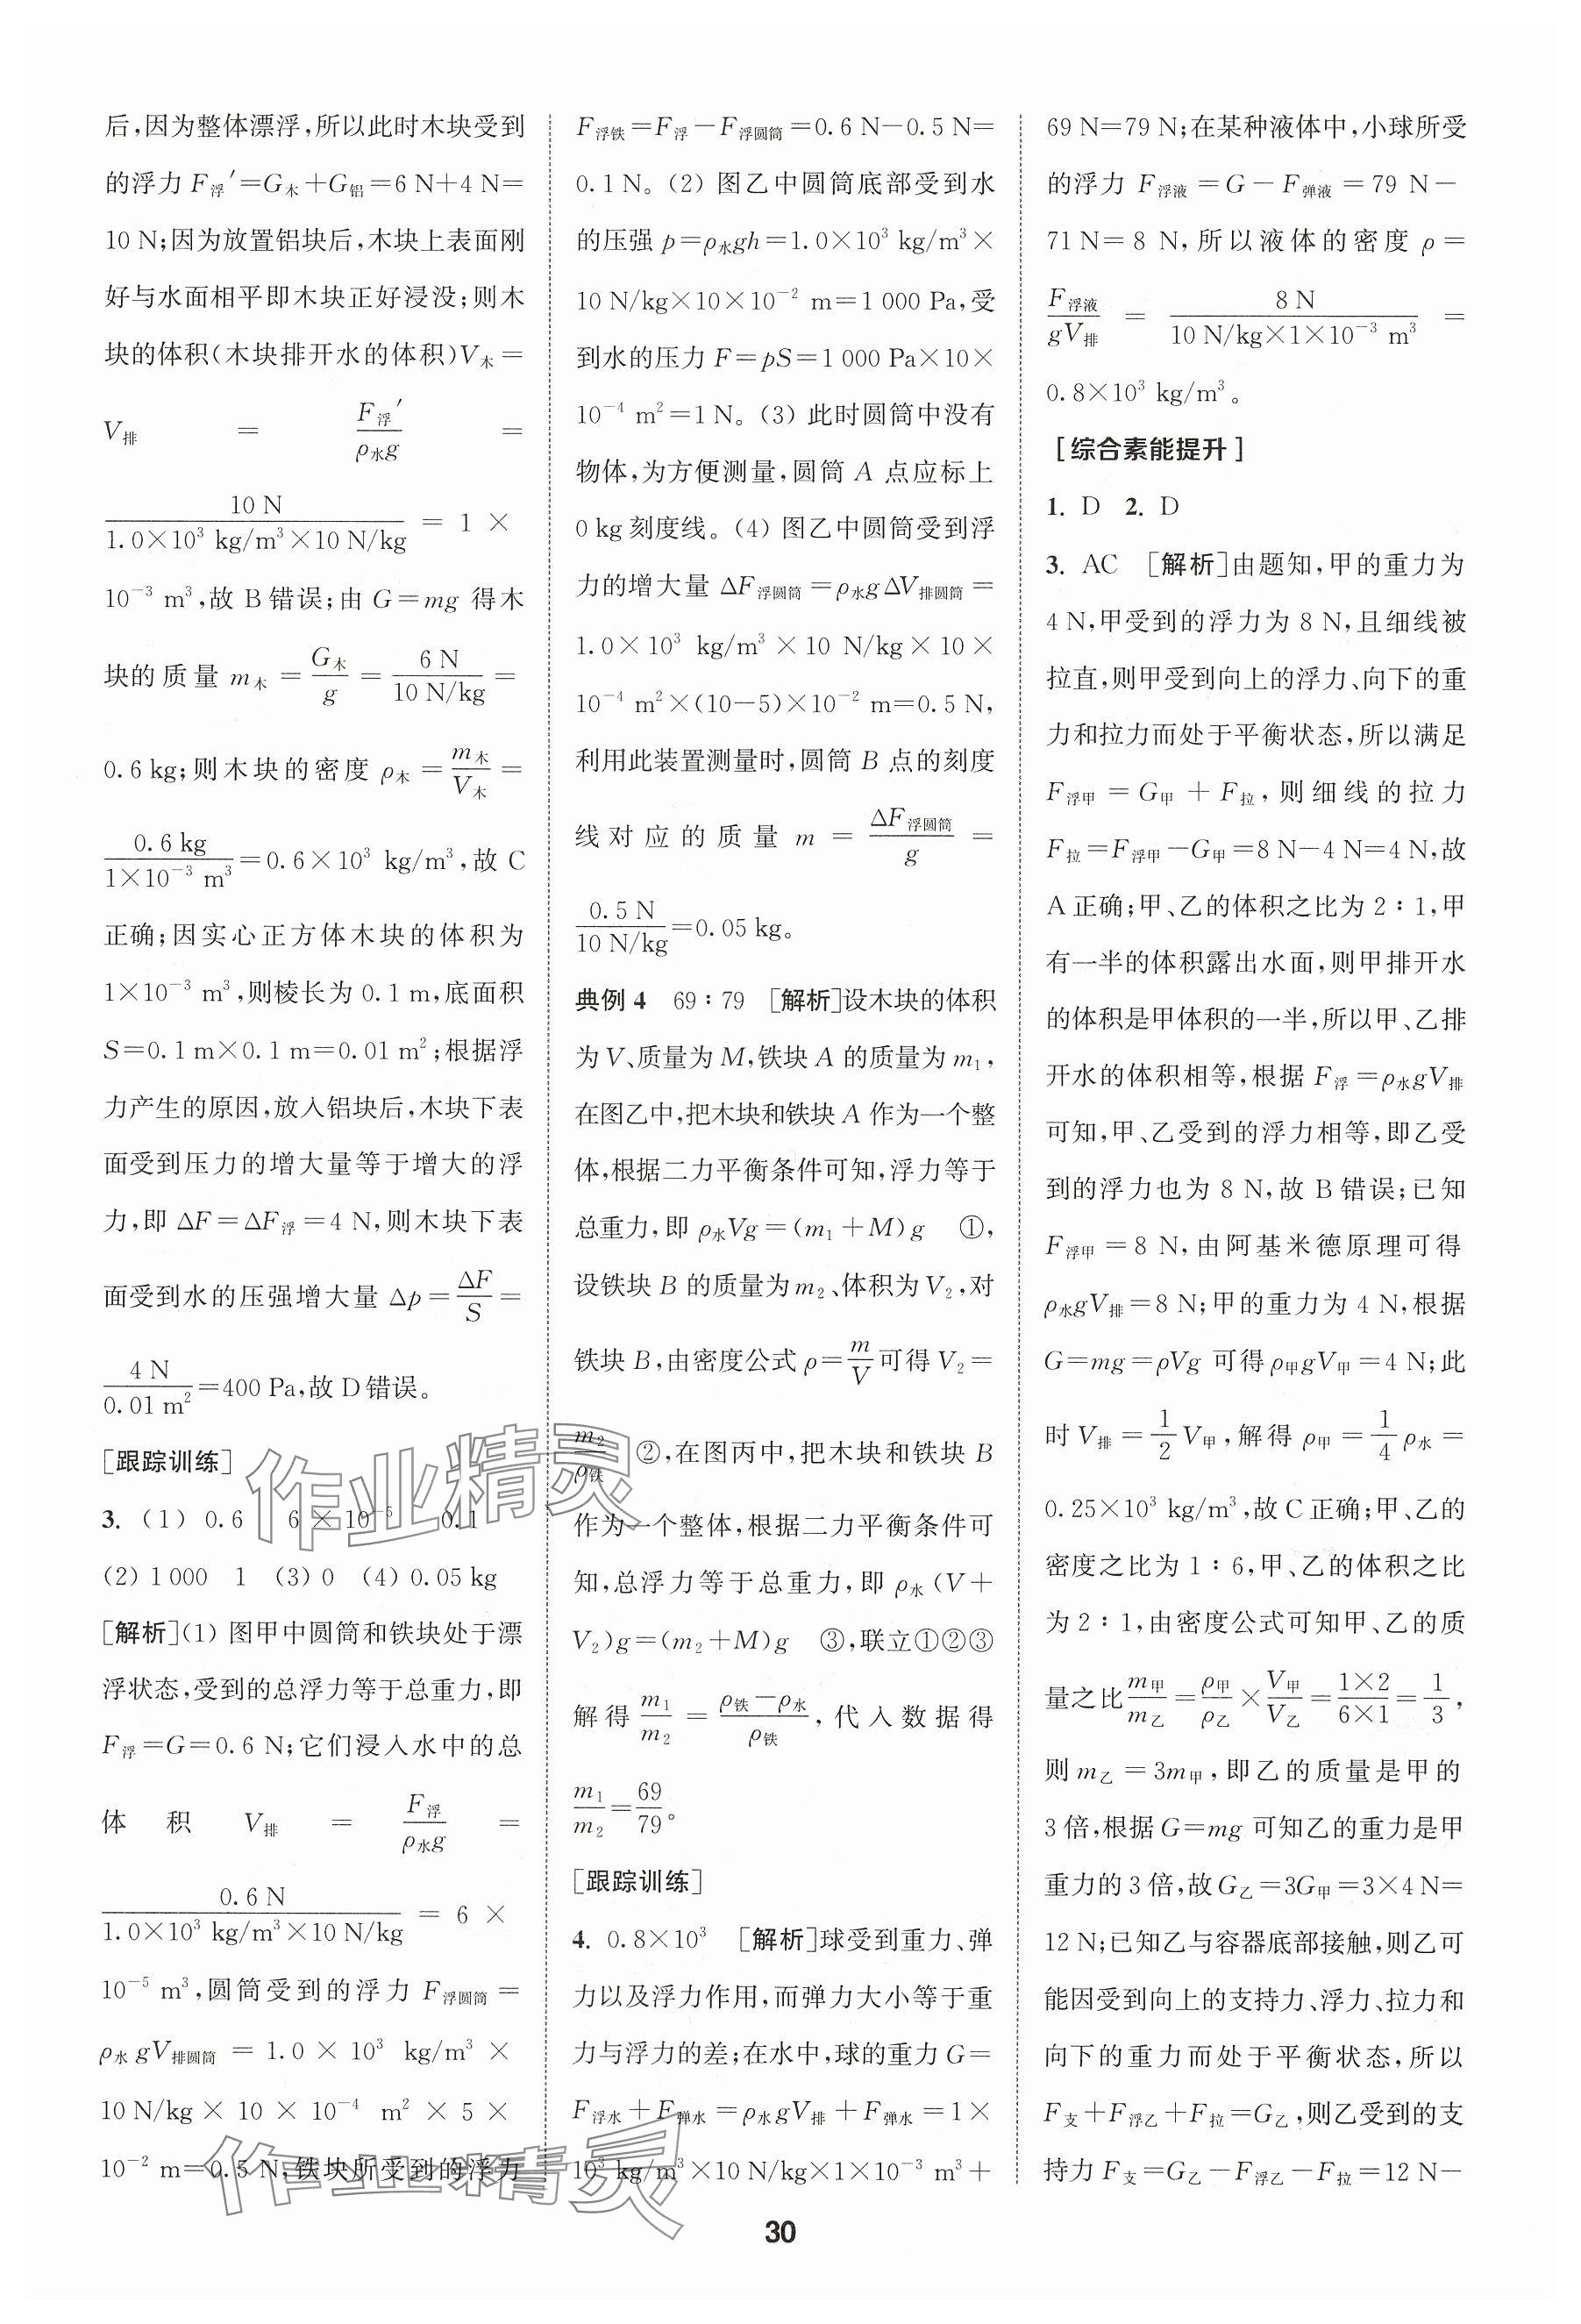 后,因为整体漂浮,所以此时木块受到
的浮力 F浮′=G木+G铝=6 N+4 N=
10 N;因为放置铝块后,木块上表面刚
好与水面相平即木块正好浸没;则木
块的体积(木块排开水的体积)V木=
V排 = F浮′/ρ水g =
10 N/(1.0×10³ kg/m³×10 N/kg) = 1 ×
10⁻³ m³,故 B 错误;由 G=mg 得木
块的质量 m木 = G木/g = 6 N/(10 N/kg) =
0.6 kg;则木块的密度 ρ木 = m木/V木 =
0.6 kg/(1×10⁻³ m³)=0.6×10³ kg/m³,故 C
正确;因实心正方体木块的体积为
1×10⁻³ m³,则棱长为 0.1 m,底面积
S=0.1 m×0.1 m=0.01 m²;根据浮
力产生的原因,放入铝块后,木块下表
面受到压力的增大量等于增大的浮
力,即 ΔF=ΔF浮=4 N,则木块下表
面受到水的压强增大量 Δp=ΔF/S=
4 N/(0.01 m²)=400 Pa,故 D 错误。
[跟踪训练]
3. (1) 0.6 6×10⁻⁵ 0.1
(2) 1 000 1 (3) 0 (4) 0.05 kg
[解析](1) 图甲中圆筒和铁块处于漂
浮状态,受到的总浮力等于总重力,即
F浮=G=0.6 N;它们浸入水中的总
体积 V排 = F浮/ρ水g =
0.6 N/(1.0×10³ kg/m³×10 N/kg) = 6 ×
10⁻⁵ m³,圆筒受到的浮力 F浮圆筒=
ρ水gV排圆筒 = 1.0 × 10³ kg/m³ ×
10 N/kg × 10 × 10⁻⁴ m² × 5 ×
10⁻² m=0.5 N,铁块所受到的浮力
F浮铁=F浮-F浮圆筒=0.6 N-0.5 N=
0.1 N。(2) 图乙中圆筒底部受到水
的压强 p=ρ水gh=1.0×10³ kg/m³×
10 N/kg×10×10⁻² m=1 000 Pa,受
到水的压力 F=pS=1 000 Pa×10×
10⁻⁴ m²=1 N。(3) 此时圆筒中没有
物体,为方便测量,圆筒 A 点应标上
0 kg 刻度线。(4) 图乙中圆筒受到浮
力的增大量 ΔF浮圆筒=ρ水gΔV排圆筒=
1.0×10³ kg/m³×10 N/kg×10×
10⁻⁴ m²×(10-5)×10⁻² m=0.5 N,
利用此装置测量时,圆筒 B 点的刻度
线对应的质量 m = ΔF浮圆筒/g =
0.5 N/(10 N/kg)=0.05 kg。
典例 4 69∶79 [解析]设木块的体积
为 V、质量为 M,铁块 A 的质量为 m₁,
在图乙中,把木块和铁块 A 作为一个整
体,根据二力平衡条件可知,浮力等于
总重力,即 ρ水Vg=(m₁+M)g ①,
设铁块 B 的质量为 m₂、体积为 V₂,对
铁块 B,由密度公式 ρ=m/V可得 V₂=
m₂/ρ铁 ②,在图丙中,把木块和铁块 B
作为一个整体,根据二力平衡条件可
知,总浮力等于总重力,即 ρ水(V+
V₂)g=(m₂+M)g ③,联立①②③
解得 m₁/m₂ = (ρ铁-ρ水)/ρ铁,代入数据得
m₁/m₂=69/79。
[跟踪训练]
4. 0.8×10³ [解析]球受到重力、弹
力以及浮力作用,而弹力大小等于重
力与浮力的差;在水中,球的重力 G=
F浮水+F弹水=ρ水gV排+F弹水=1×
10³ kg/m³×10 N/kg×1×10⁻³ m³+
69 N=79 N;在某种液体中,小球所受
的浮力 F浮液 = G - F弹液 = 79 N-
71 N=8 N,所以液体的密度 ρ=
F浮液/gV排 = 8 N/(10 N/kg×1×10⁻³ m³) =
0.8×10³ kg/m³。
[综合素能提升]
1. D 2. D
3. AC [解析]由题知,甲的重力为
4 N,甲受到的浮力为 8 N,且细线被
拉直,则甲受到向上的浮力、向下的重
力和拉力而处于平衡状态,所以满足
F浮甲 = G甲 + F拉,则细线的拉力
F拉=F浮甲-G甲=8 N-4 N=4 N,故
A 正确;甲、乙的体积之比为 2∶1,甲
有一半的体积露出水面,则甲排开水
的体积是甲体积的一半,所以甲、乙排
开水的体积相等,根据 F浮=ρ水gV排
可知,甲、乙受到的浮力相等,即乙受
到的浮力也为 8 N,故 B 错误;已知
F浮甲 = 8 N,由阿基米德原理可得
ρ水gV排=8 N;甲的重力为 4 N,根据
G=mg=ρVg 可得 ρ甲gV甲=4 N;此
时 V排=1/2 V甲,解得 ρ甲=1/4 ρ水=
0.25×10³ kg/m³,故 C 正确;甲、乙的
密度之比为 1∶6,甲、乙的体积之比
为 2∶1,由密度公式可知甲、乙的质
量之比m甲/m乙=ρ甲/ρ乙×V甲/V乙=(1×2)/(6×1)=1/3,
则 m乙=3m甲,即乙的质量是甲的
3 倍,根据 G=mg 可知乙的重力是甲
重力的 3 倍,故 G乙=3G甲=3×4 N=
12 N;已知乙与容器底部接触,则乙可
能因受到向上的支持力、浮力、拉力和
向下的重力而处于平衡状态,所以
F支+F浮乙+F拉=G乙,则乙受到的支
持力 F支=G乙-F浮乙-F拉=12 N-
作业精灵
作业精灵
30